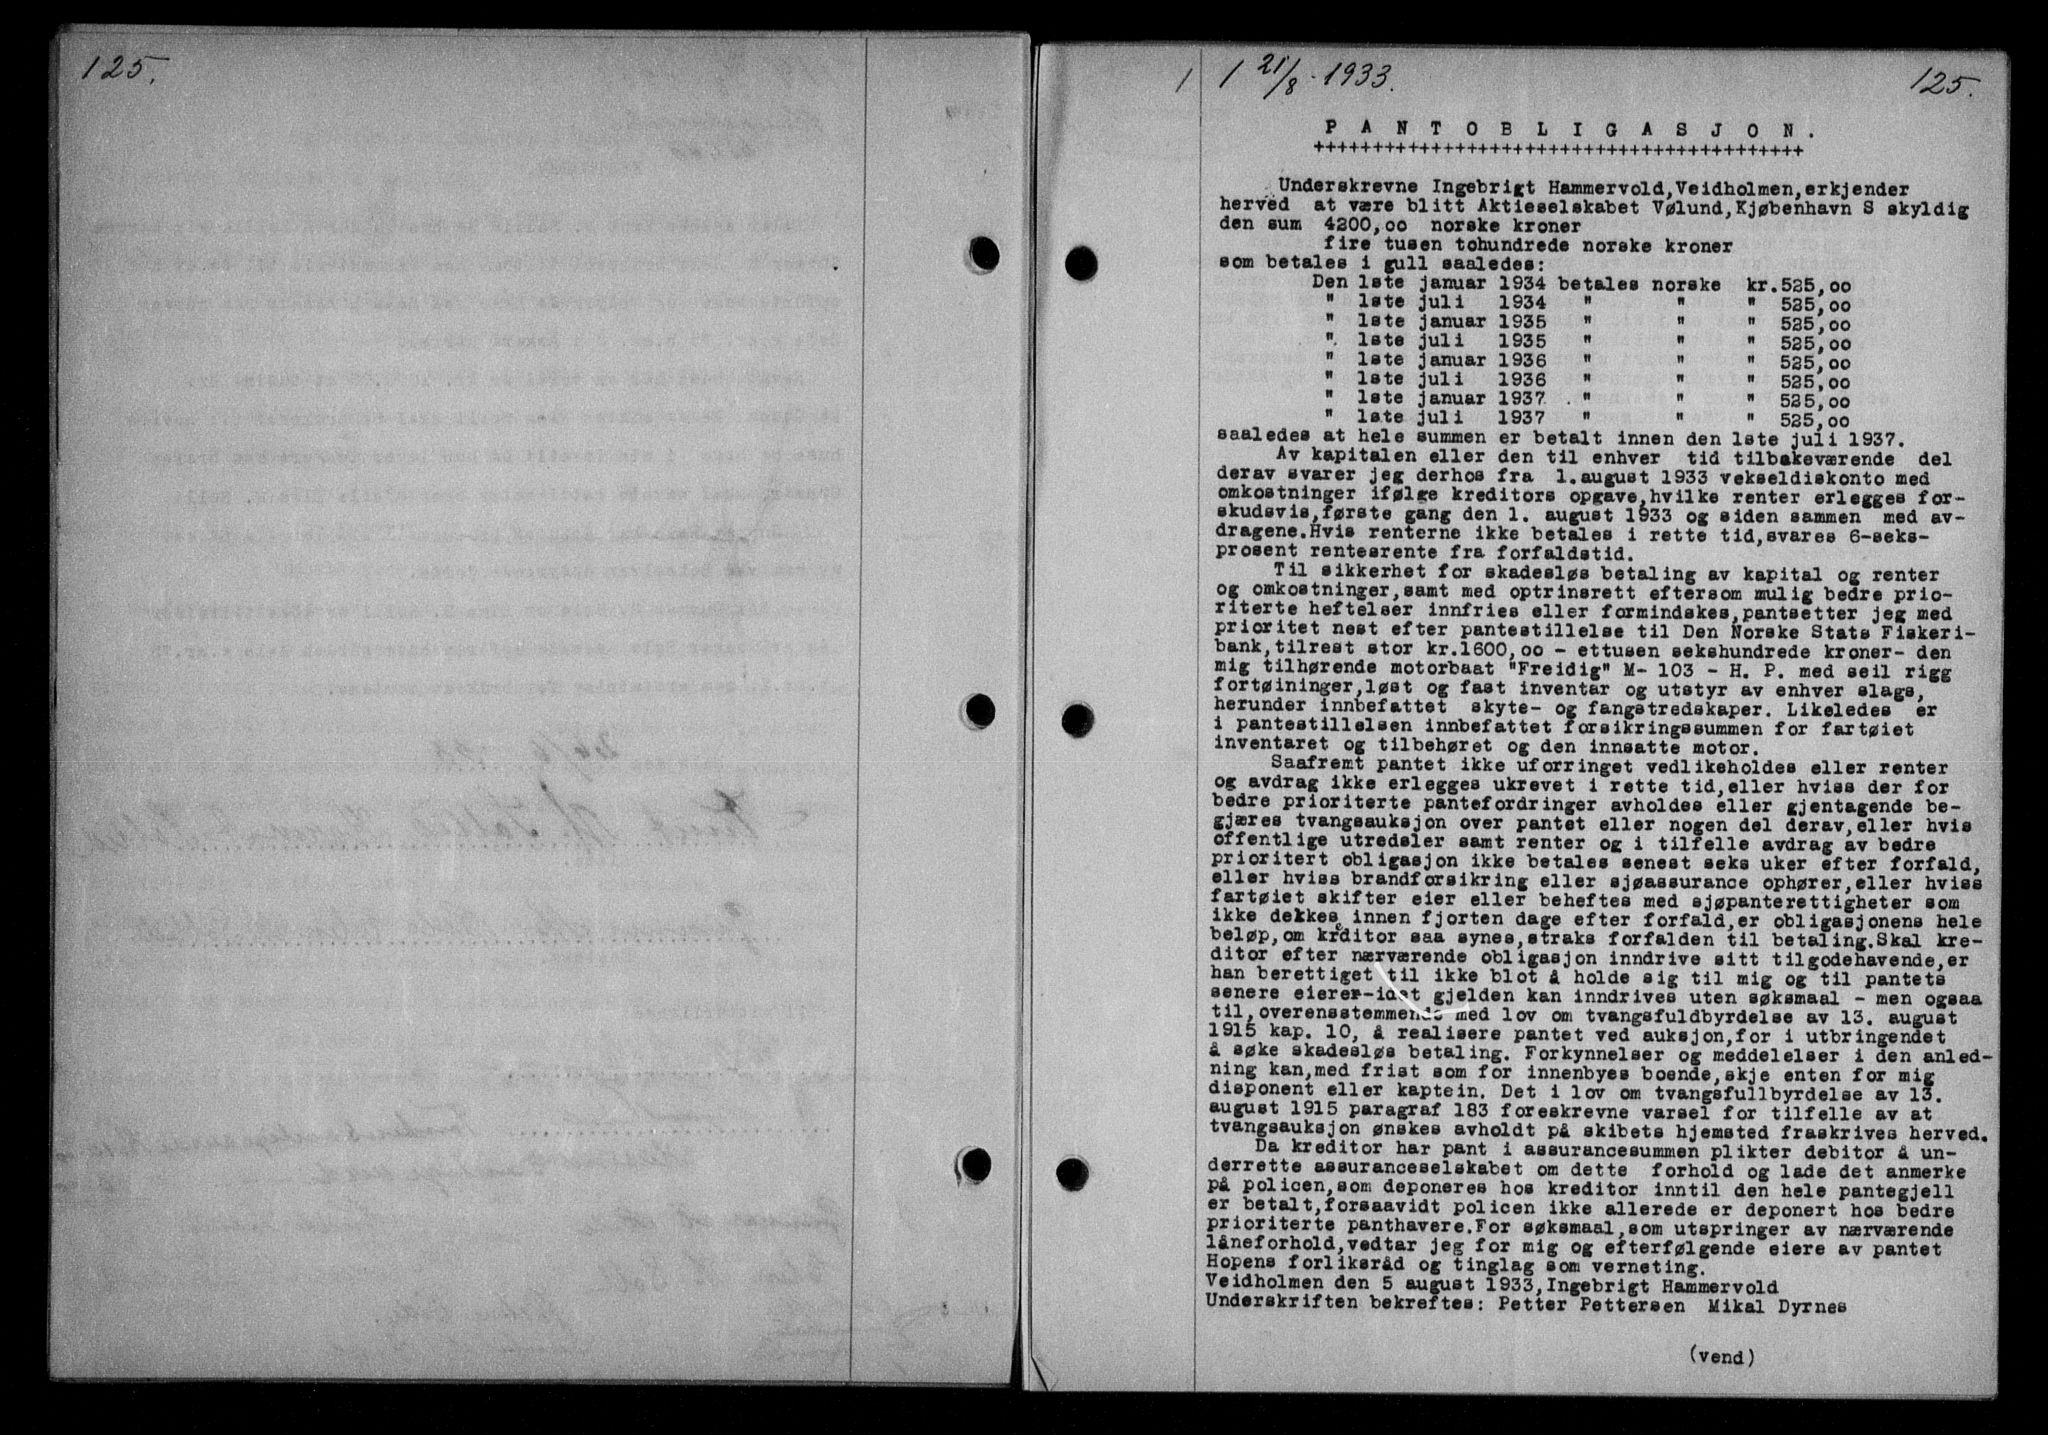 125.
1 1 21/8 - 1933. 125.
P A N T O B L I G A S J O N .
++++++++++++++++++++++++++++++++++++++++++
Underskrevne Ingebrigt Hammervold,Veidholmen,erkjender
herved at være blitt Aktieselskabet Vølund,Kjøbenhavn S skyldig
den sum 4200,00 norske kroner
fire tusen tohundrede norske kroner
som betales i gull saaledes:
Den 1ste januar 1934 betales norske kr.525,00
" 1ste juli 1934 " " " 525,00
" 1ste januar 1935 " " " 525,00
" 1ste juli 1935 " " " 525,00
" 1ste januar 1936 " " " 525,00
" 1ste juli 1936 " " " 525,00
" 1ste januar 1937 " " " 525,00
" 1ste juli 1937 " " " 525,00
saaledes at hele summen er betalt innen den 1ste juli 1937.
Av kapitalen eller den til enhver tid tilbakeværende del
derav svarer jeg derhos fra 1.august 1933 vekseldiskonto med
omkostninger ifølge kreditors opgave,hvilke renter erlegges for-
skudsvis,første gang den 1. august 1933 og siden sammen med av-
dragene.Hvis renterne ikke betales i rette tid,svares 6-seks-
prosent rentesrente fra forfaldstid.
Til sikkerhet for skadesløs betaling av kapital og renter
og omkostninger,samt med optrinsrett eftersom mulig bedre prio-
riterte heftelser innfries eller formindskes,pantsetter jeg med
prioritet nest efter pantestillelse til Den Norske Stats Fiskeri-
bank,tilrest stor kr.1600,00 - ettusen sekshundrede kroner- den
mig tilhørende motorbaat "Freidig" M- 103 - H. P. med seil rigg
fortøininger,løst og fast inventar og utstyr av enhver slags,
herunder innbefattet skyte- og fangstredskaper. Likeledes er
i pantestillelsen innbefattet forsikringssummen for fartøiet
inventaret og tilbehøret og den innsatte motor.
Saafremt pantet ikke uforringet vedlikeholdes eller renter
og avdrag ikke erlegges ukrevet i rette tid,eller hviss der for
bedre prioriterte pantefordringer avholdes eller gjentagende be-
gjæres tvangsauksjon over pantet eller nogen del derav,eller hvis
offentlige utredsler samt renter og i tilfelle avdrag av bedre
prioritert obligasjon ikke betales senest seks uker efter forfald,
eller hviss brandforsikring eller sjøassurance ophører,eller hviss
fartøiet skifter eier eller beheftes med sjøpanterettigheter som
ikke dekkes innen fjorten dage efter forfald,er obligasjonens hele
beløp,om kreditor saa synes,straks forfalden til betaling.Skal kre-
ditor efter nærværende obligasjon inndrive sitt tilgodehavende,er
han berettiget til ikke blot å holde sig til mig og til pantets
senere eierer-idet gjelden kan inndrives uten søksmaal - men ogsaa
til,overensstemmende med lov om tvangsfuldbyrdelse av 13. august
1915 kap. 10, å realisere pantet ved auksjon,for i utbringendet
å søke skadesløs betaling. Forkynnelser og meddelelser i den anled-
ning kan,med frist som for innenbyes boende,skje enten for mig
disponent eller kaptein. Det i lov om tvangsfullbyrdelse av 13.
august 1915 paragraf 183 foreskrevne varsel for tilfelle av at
tvangsauksjon ønskes avholdt på skibets hjemsted fraskrives herved.
Da kreditor har pant i assurancesummen plikter debitor å un-
derrette assuranceselskabet om dette forhold og lade det anmerke
på policen,som deponeres hos kreditor inntil den hele pantegjell
er betalt,forsaavidt policen ikke allerede er deponert hos bedre
prioriterte panthavere.For søksmaal,som utspringer av nærværende
låneforhold,vedtar jeg for mig og efterfølgende eiere av pantet
Hopens forliksråd og tinglag som verneting.
Veidholmen den 5 august 1933,Ingebrigt Hammervold
Underskriften bekreftes: Petter Pettersen Mikal Dyrnes
(vend)